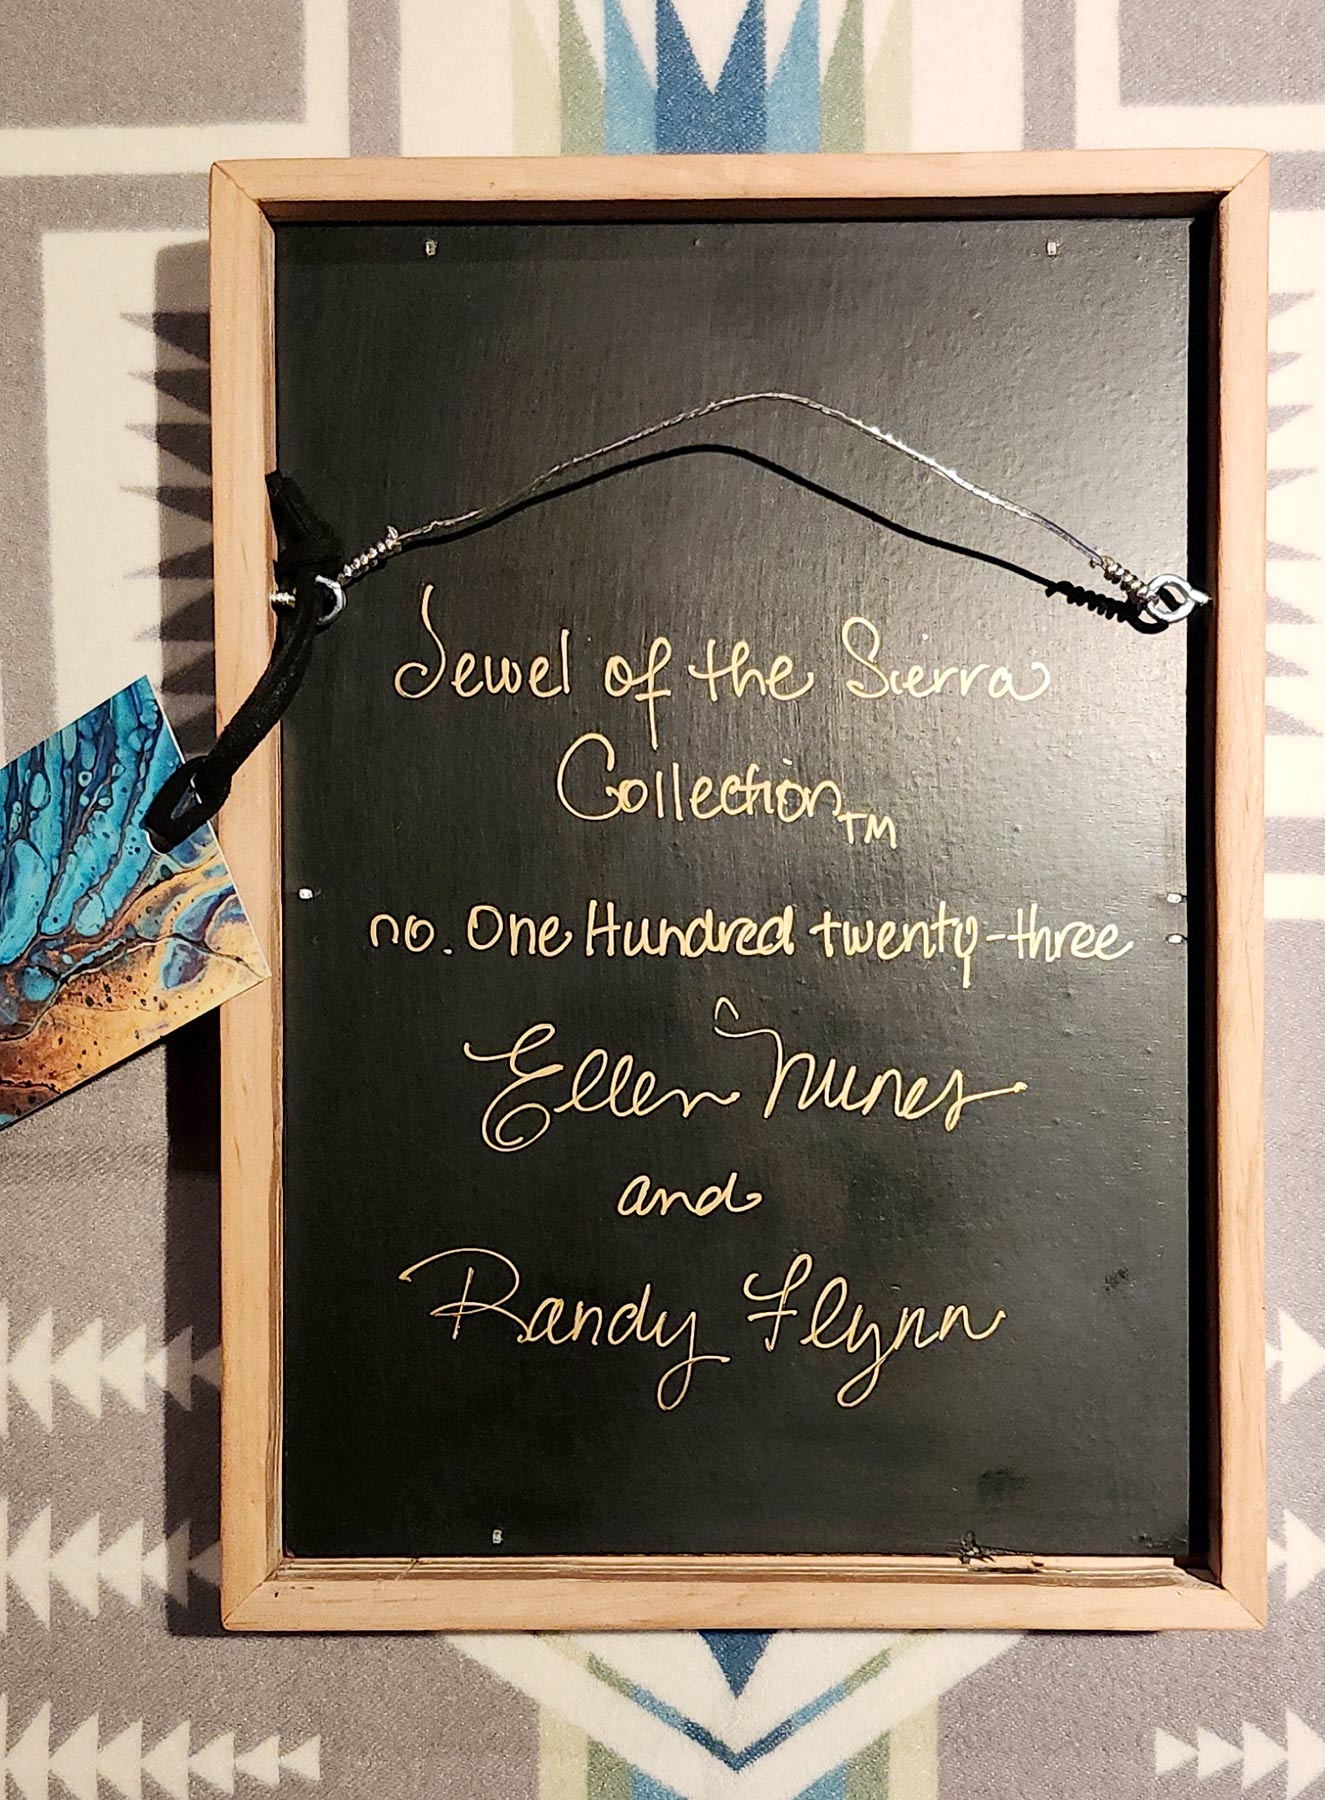 Jewel of the Sierra
Collection™
no. One Hundred twenty-three
Ellen Nunes
and
Randy Flynn